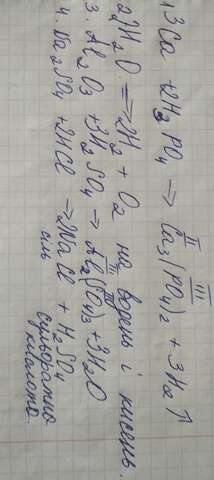 1 3Ca + 2H₃PO₄ → Ca₃(PO₄)₂ + 3H₂↑
2. 2H₂O ⇒ 2H₂ + O₂ на водень і кисень.
3. Al₂O₃ + 3H₂SO₄ → Al₂(SO₄)₃ + 3H₂O
4. Na₂SO₄ + 2HCl → 2NaCl + H₂SO₄
сіль сульфатна
кислота.